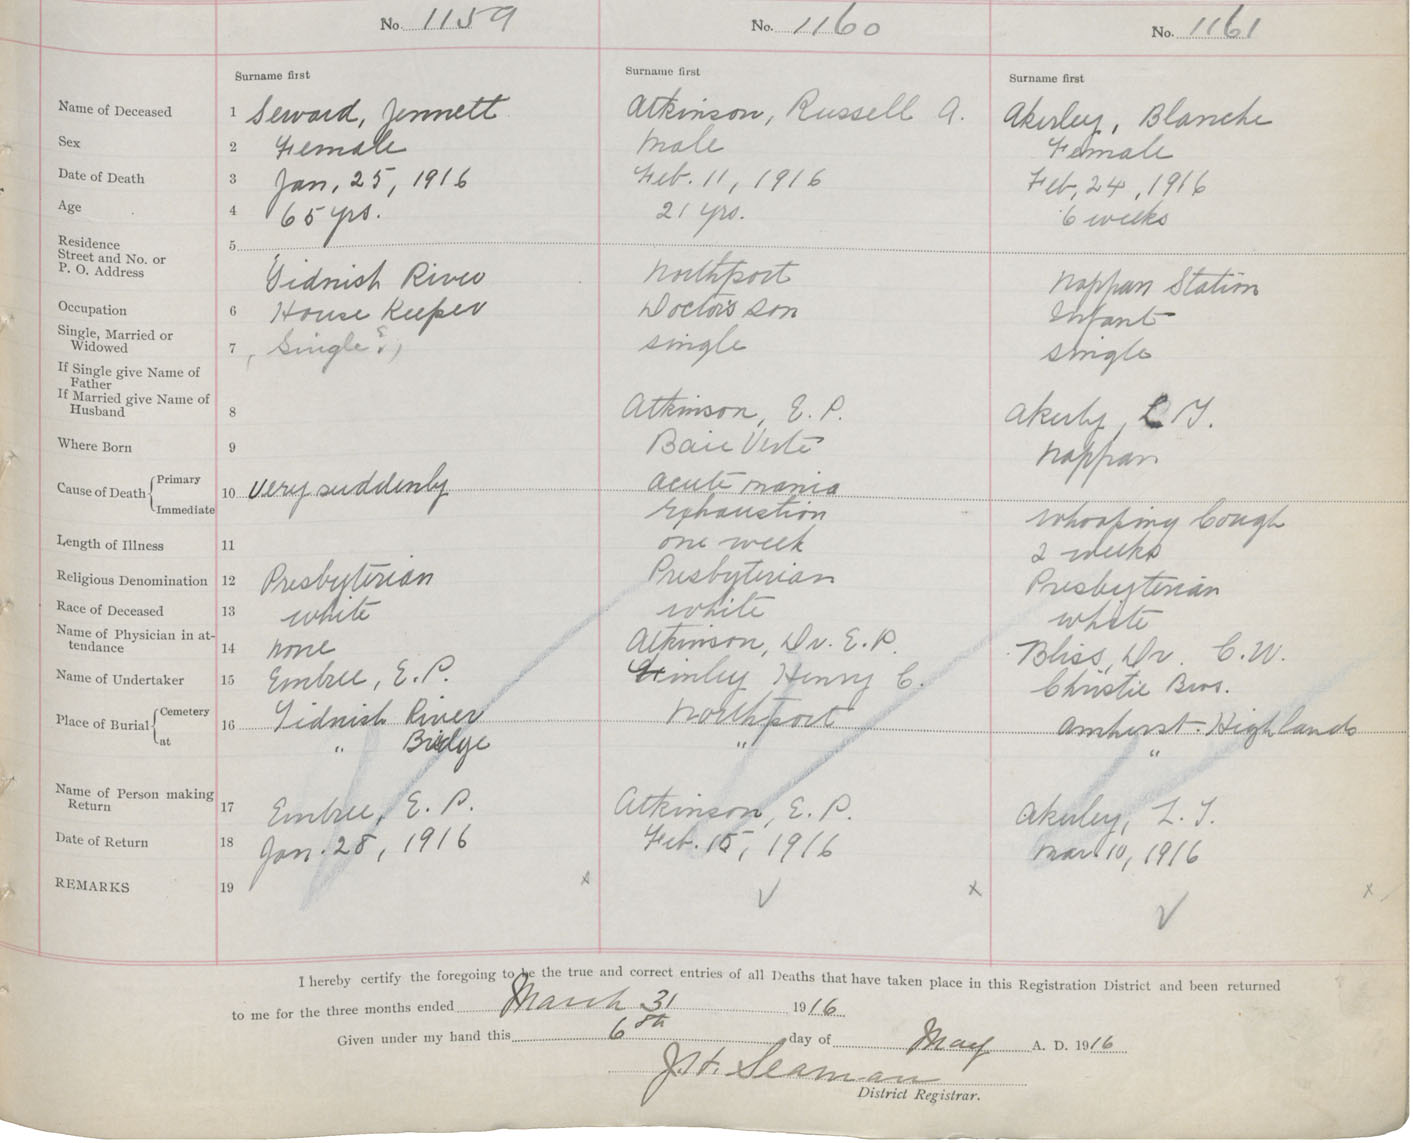 No. 1159 No. 1160 No. 1161
Surname first Surname first Surname first
Name of Deceased 1 Seward, Jennett Atkinson, Russell A. Akerley, Blanche
Sex 2 Female Male Female
Date of Death 3 Jan, 25, 1916 Feb. 11, 1916 Feb, 24, 1916
Age 4 65 yrs. 21 yrs. 6 weeks
Residence
Street and No. or 5
P. O. Address Tidnish River Northport Nappan Station
Occupation 6 House Keeper Doctor's son Infant
Single, Married or
Widowed 7 Single ?, single single
If Single give Name of
Father
If Married give Name of
Husband 8 Atkinson, E. P. Akerly, L T.
Where Born 9 Baie Verte Nappan
Cause of Death Primary 10 very suddenly acute mania
Immediate exhaustion whooping Cough
Length of Illness 11 one week 2 weeks
Religious Denomination 12 Presbyterian Presbyterian Presbyterian
Race of Deceased 13 white white white
Name of Physician in at-
tendance 14 none Atkinson, Dr. E. P. Bliss, Dr. C. W.
Name of Undertaker 15 Embree, E. P. Henry C. Christie Bros.
Place of Burial Cemetery 16 Tidnish River Northport Amherst. Highlands
at " Bridge " "
Name of Person making
Return 17 Embree, E. P. Atkinson, E. P. Akerley, L. T.
Date of Return 18 Jan. 28, 1916 Feb. 15, 1916 Mar. 10, 1916
REMARKS 19 x √ x √ x
I hereby certify the foregoing to be the true and correct entries of all Deaths that have taken place in this Registration District and been returned
to me for the three months ended March 31 1916
Given under my hand this 6th day of May A. D. 1916
J. H. Seaman
District Registrar.